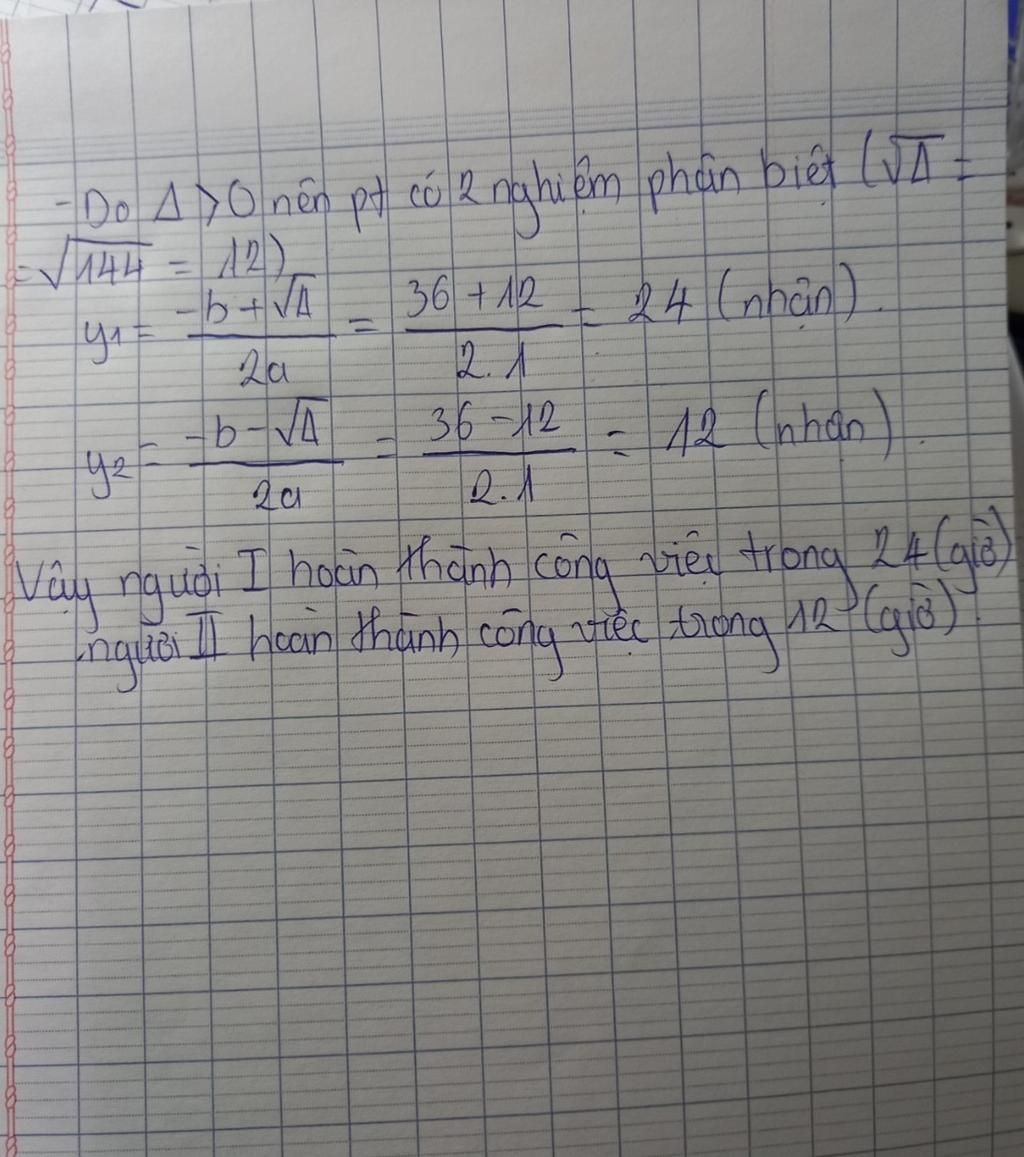 - Do Δ > 0 nên pt có 2 nghiệm phân biệt (√Δ =
= √144 = 12)
y1 = (-b + √Δ)/(2a) = (36 + 12)/(2.1) = 24 (nhận).
y2 = (-b - √Δ)/(2a) = (36 - 12)/(2.1) = 12 (nhận).
Vậy người I hoàn thành công việc trong 24 (giờ)
người II hoàn thành công việc trong 12 (giờ).